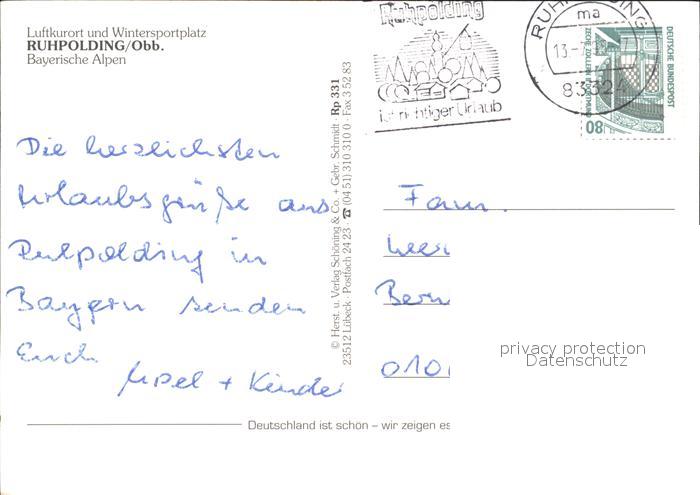 Luftkurort und Wintersportplatz
RUHPOLDING/Obb.
Bayerische Alpen
Die herzlichsten
Urlaubsgrüße aus
Ruhpolding in
Bayern senden
Euch
+ Kinder
Deutschland ist schön – wir zeigen es
© Herst. u. Verlag Schöning & Co. + Gebr. Schmidt · Rp 331
23512 Lübeck · Postfach 24 23 · ☎ (04 51) 310 310 0 · Fax 3 52 83
Ruhpolding
ist richtiger Urlaub
RUHPOLDING
ma
13.-
83324
DEUTSCHE BUNDESPOST
ZECHE ZOLLERN II DORTMUND
80
Fam.
Bern
010
privacy protection
Datenschutz